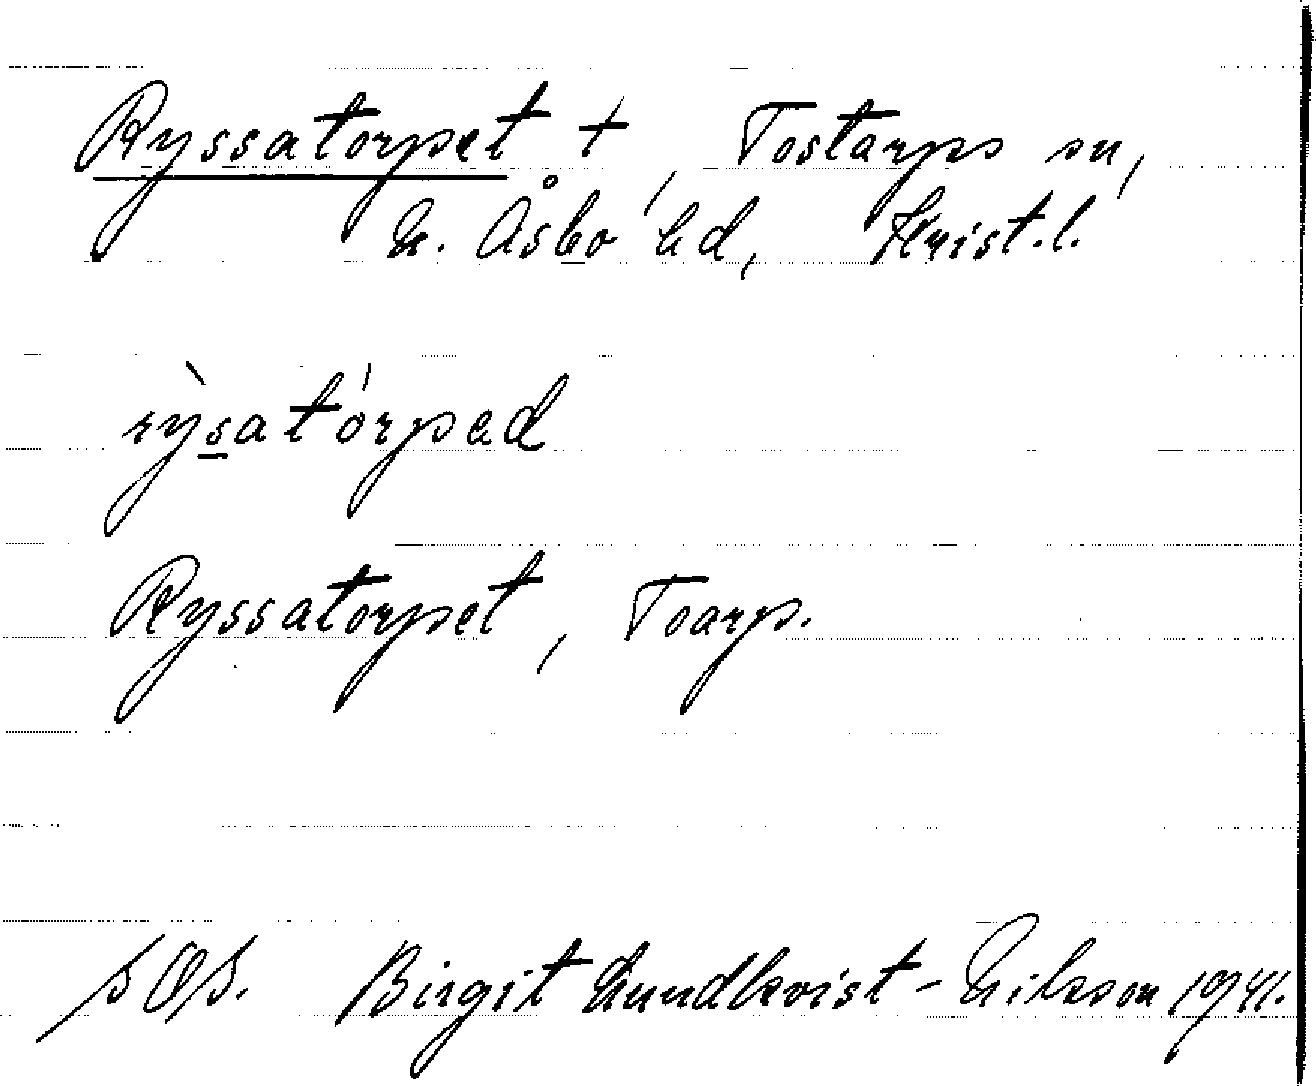 Ryssatorpet +, Tostarps sn,
N. Åsbo hd, Krist. l.
rỳsatórpad
Ryssatorpet, Toarp.
SOS. Birgit Lundkvist-Nilsson 1941.